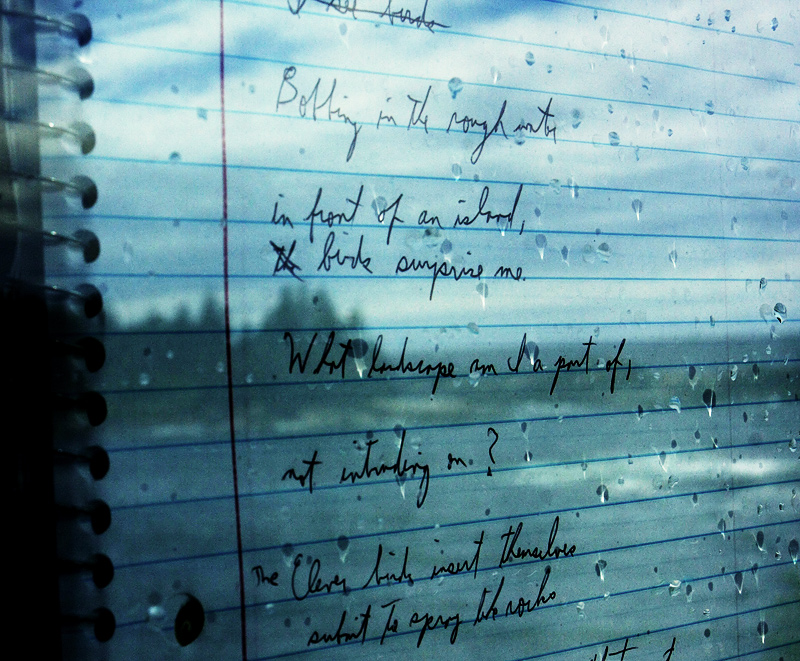 I see birds
Bobbing in the rough water
in front of an island,
birds surprise me.
What landscape am I a part of,
not intruding on?
The Eleven birds insert themselves
submit to spray like rocks